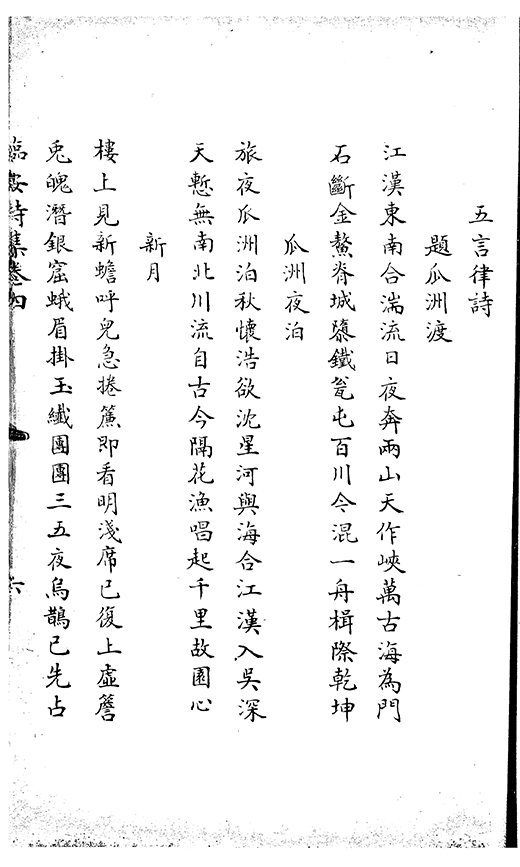 五言律詩
題瓜洲渡
江漢東南合湍流日夜奔兩山天作峽萬古海為門
石斷金鰲脊城隳鐵瓮屯百川今混一舟楫際乾坤
瓜洲夜泊
旅夜瓜洲泊秋懷浩欲沈星河與海合江漢入吳深
天慙無南北川流自古今隔花漁唱起千里故園心
新月
樓上見新蟾呼兒急捲簾即看明淺席已復上虛簷
兎魄潛銀窟蛾眉掛玉纖團團三五夜烏鵲已先占
臨安詩集卷四
六